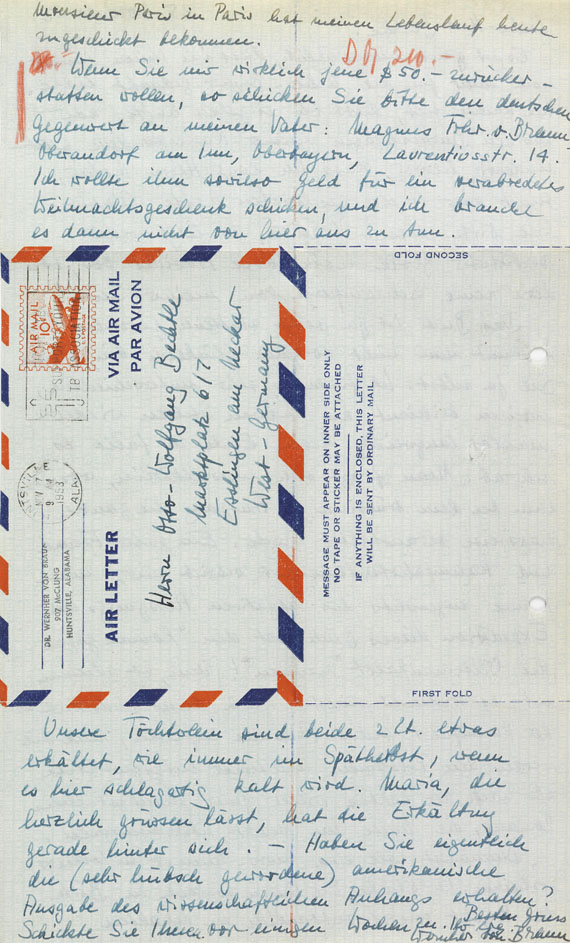 Monsieur Paris in Paris hat meinen Lebenslauf heute
zugeschickt bekommen.
DM 210.-
Wenn Sie mir wirklich jene $50.- zurücker-
statten wollen, so schicken Sie bitte den deutschen
Gegenwert an meinen Vater: Magnus Frhr. v. Braun
Oberaudorf am Inn, Oberbayern, Laurentiusstr. 14.
Ich wollte ihm sowieso Geld für ein verabredetes
Weihnachtsgeschenk schicken, und ich brauche
es dann nicht von hier aus zu tun.
SECOND FOLD
AIR MAIL
10¢
VIA AIR MAIL
PAR AVION
Herrn Otto-Wolfgang Bechtle
Marktplatz 6/7
Esslingen am Neckar
West-Germany
NOV 7
9 AM
1953
ALA.
DR. WERNHER VON BRAUN
907 McCLUNG
HUNTSVILLE, ALABAMA
AIR LETTER
MESSAGE MUST APPEAR ON INNER SIDE ONLY
NO TAPE OR STICKER MAY BE ATTACHED
IF ANYTHING IS ENCLOSED, THIS LETTER
WILL BE SENT BY ORDINARY MAIL
FIRST FOLD
Unsere Töchterlein sind beide z Zt. etwas
erkältet, wie immer im Spätherbst, wenn
es hier schlagartig kalt wird. Maria, die
herzlich grüssen lässt, hat die Erkältung
gerade hinter sich. – Haben Sie eigentlich
die (sehr hübsch gewordene) amerikanische
Ausgabe des wissenschaftlichen Anhangs erhalten?
Schickte Sie Ihnen vor einigen Wochen zu.
Besten Gruss
Ihr
Wernher von Braun